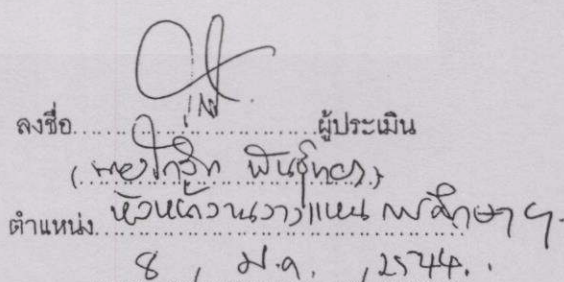 ลงชื่อ..............................ผู้ประเมิน
( นายโกสิท พันธุ์ทอง )
ตำแหน่ง หัวหน้างานวางแผน การศึกษา ฯ
8 / ม.ค. / 2544.